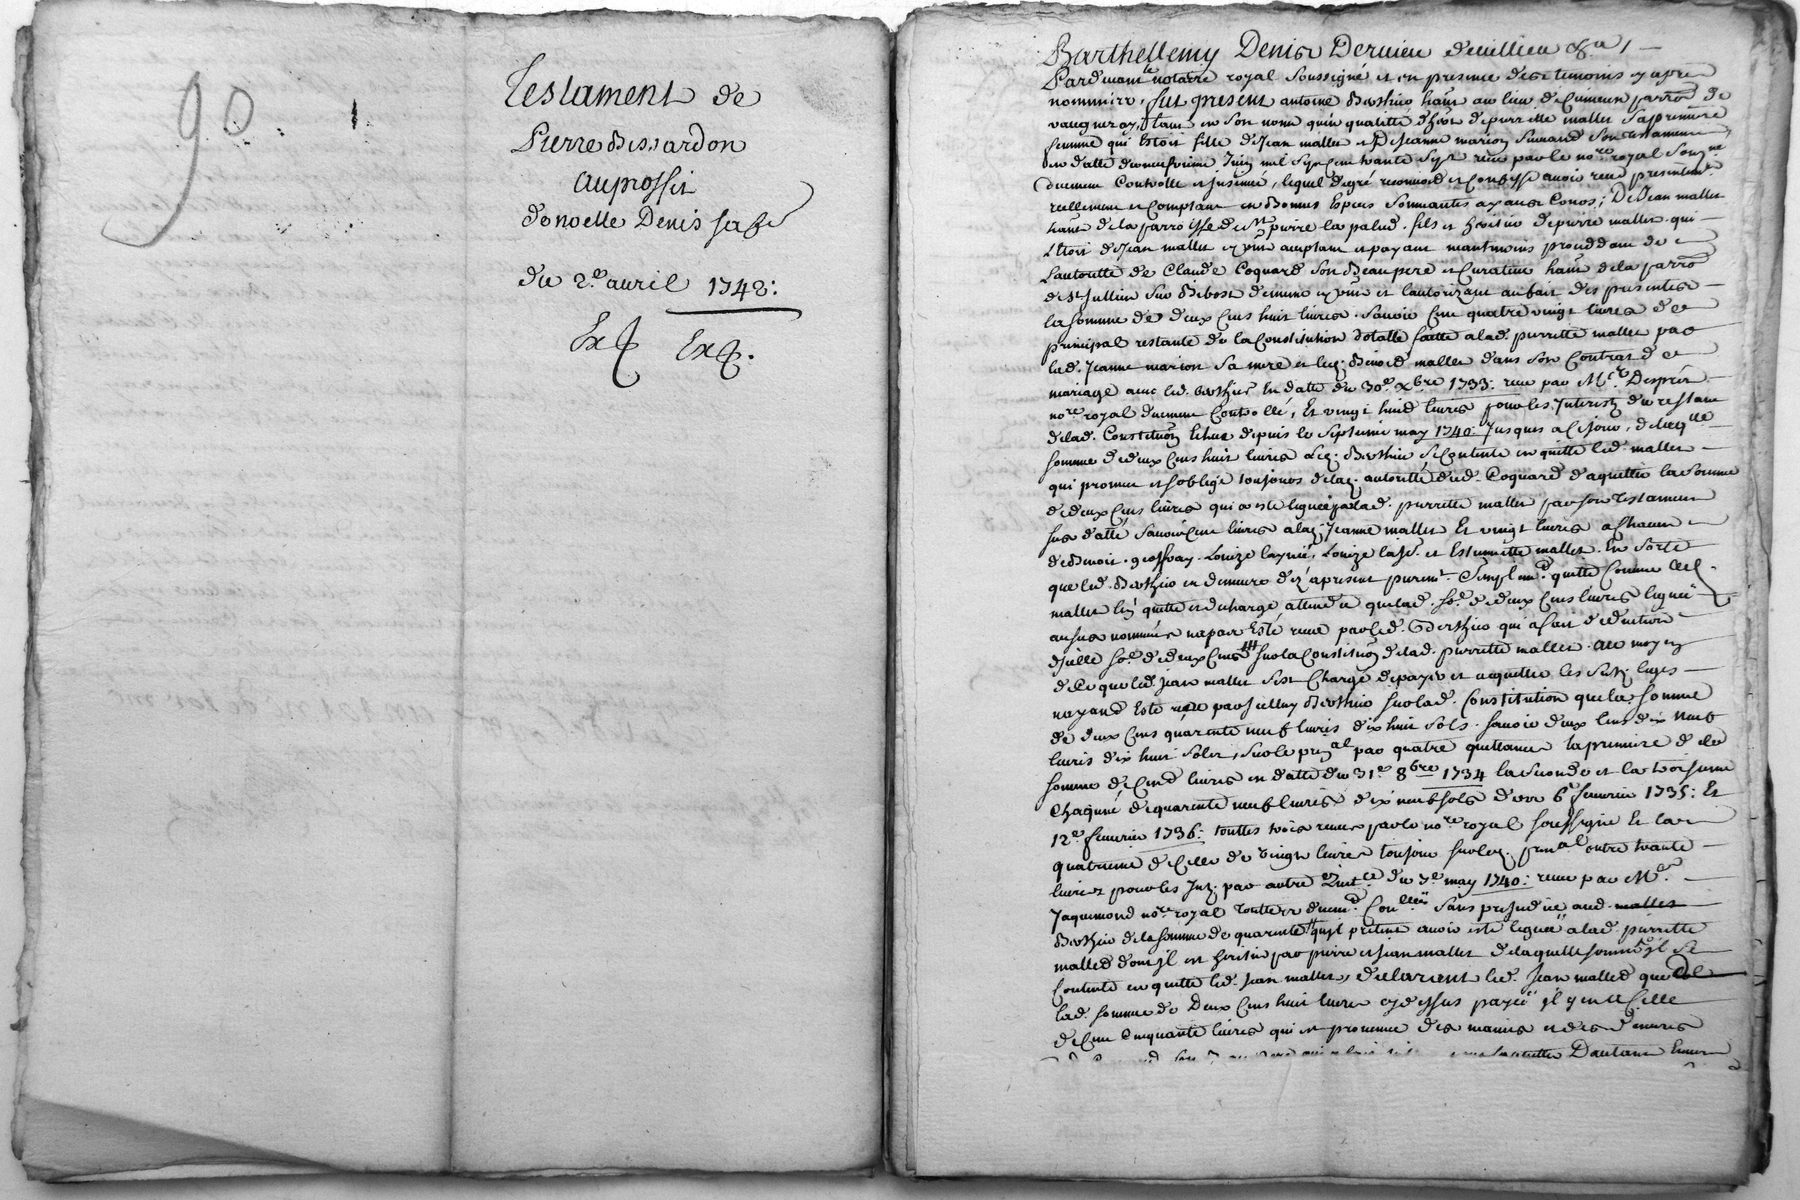 90. 1
Testament de
Pierre Bissardon
au proffit
d'enoelle Denis sa fe
du 2.e auril 1742:
Ex Ex.
Barthellemy Denis Dernieu
Pardeuant le notaire royal soussigné et en presence des temoins cy apres
nommez, fut present antoine Berthier hant au lieu de parro de
vaugneray, tant en son nom qu'en qualité d'her de pierrette mallet sa premiere
femme qui estoit fille de Jean mallet et de Jeanne marion suiuant son testament
en datte du Juin mil sept cent trante sept receu par le no.re royal sousig.né
duement Controllé et jnsinué, lequel de gré reconnoit et confesse auoir receu presentem.t
reellement et comptant en bonnes especes sonnantes ayant Cours; De Jean mallet
hant de la parroisse de St pierre la palud. fils et heritier de pierre mallet qui
Estoit de Jean mallet cy pnt acceptant et payant procedant de
L'autorité de Claude Coquard son Beaupere et Curateur hant de la parro
de St Jullien sur Bibost de meme cy pnt et l'autorizant au fait des presentes
la somme de deux Cens huit liures. sauoir Cent quatre vingt liures de
principal restante de la Constitution dotalle faitte a lad. pierrette mallet par
lad. Jeanne marion sa mere et led. Benoid mallet dans son Contrat de
mariage auec led. Berthier En datte du 30.e Xbre 1733: receu par M.e Desprèz
no.re royal duement Controllé, Et vingt huit liures pour les Jnterests du restant
de lad. Constitution Echus depuis le septieme may 1740. Jusques a ce jour, de laq.lle
somme de deux Cens huit liures led. Berthier se Contente en quitte led. mallet
qui promet et s'oblige toujours de la autorité dud. Coquard d'aquitter la somme
de deux Cens liures qui a esté leguée par lad. pierrette mallet par son Testament
sus datté sauoir Cent liures a lad. Jeanne mallet Et vingt liures a Chacun
de Benoit, geoffray, Louize laynée, Louize la Je. et Estiennette mallet. En sorte
que led. Berthier en demeure dez a present purem.t simplem.t quitte Comme led.
mallet l'en quitte et decharge attendu que lad. so.e de deux Cens liures leguée
aux sus nommés n'a pas Esté receue par led. Berthier qui a fait deduction
d'jcelle so.e de deux Cens ## sur la Constitution de lad. pierrette mallet. au moyen
de Ce que led. Jean mallet s'est Chargé de payer et acquitter les susd. legs
n'ayant Esté receu par jcelluy Berthier sur lad. Constitution que la somme
de deux Cens quarente neuf liures dix huit sols. sauoir deux Cens dix neuf
liures dix huit sols, sur le prin.al par quatre quittances la premiere de la
somme de Cent liures en datte du 31.e 8bre 1734 la seconde et la troisieme
Chacune de quarente neuf liures dix neuf sols des 6.e feurier 1735: Et
12.e feurier 1736: touttes trois receues par le no.re royal soussigné Et la
quatrieme de Celle de vingt liures toujour sur led. prin.al outre trante
liures pour les Jnt. par autre Quit.ce du 7.e may 1740: receue par M.e
Jaquemond no.re royal Touttes duem.t Con.llées sans prejudice aud. mallet
Berthier de la somme de quarente ## qu'jl pretend auoir esté leguée a lad. pierrette
mallet dont jl est heritier par pierre et Jean mallet de laquelle somme jl se
Contente en quitte led. Jean mallet, declarant led. Jean mallet que de
lad. somme de Deux Cens huit liures cy dessus payée jl y en a Celle
de Cent Cinquante liures qui est prouenue des mains et des deniers